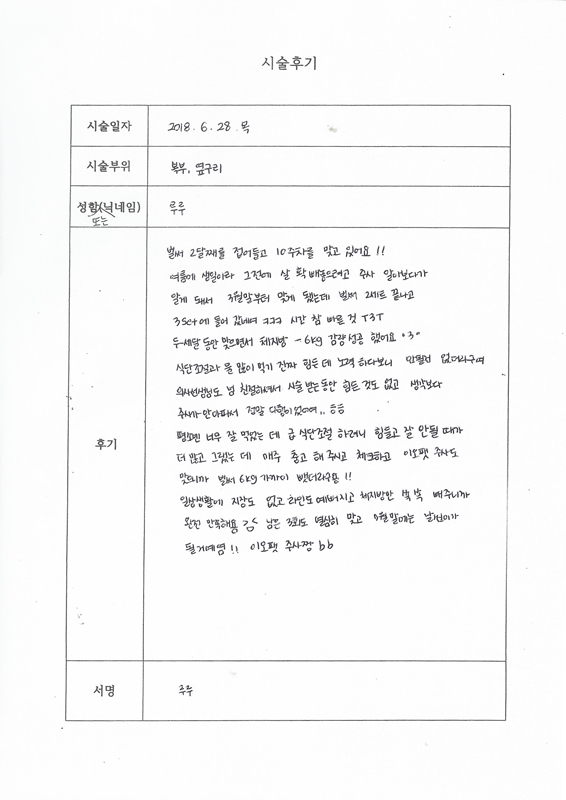 시술후기
시술일자 2018. 6. 28. 목
시술부위 복부, 옆구리
성함(닉네임) 루루
또는
후기
벌써 2달째를 접어들고 10주차를 맞고 있어요!!
여름에 생일이라 그전에 살 확 빼놓으려고 주사 알아보다가
알게 돼서 3월말부터 맞게 됐는데 벌써 2세트 끝나고
3set에 들어 갔네여 ㅋㅋㅋ 시간 참 빠른 것 T3T
두세달 동안 맞으면서 체지방 -6kg 감량성공 했어요 °3°
식단조절과 물 많이 먹기 진짜 힘든 데 노력 하다보니 안될건 없더라구여
의사선생님도 넘 친절하셔서 시술 받는동안 힘든 것도 없고 생각보다
주사가 안아파서 정말 다행이었어여,, ㅎㅎ
평소엔 너무 잘 먹었는 데 급 식단조절 하려니 힘들고 잘 안될 때가
더 많고 그랬는 데 매주 출고 해 주시고 체크하고 이오팻 주사도
맞으니까 벌써 6kg 가까이 뺐더라구욤!!
일상생활에 지장도 없고 라인도 예뻐지고 체지방만 쏙쏙 빼주니까
완전 만족해용 남은 3회도 열심히 맞고 날씬이가
될거예영!! 이오팻 주사짱 bb
서명 루루